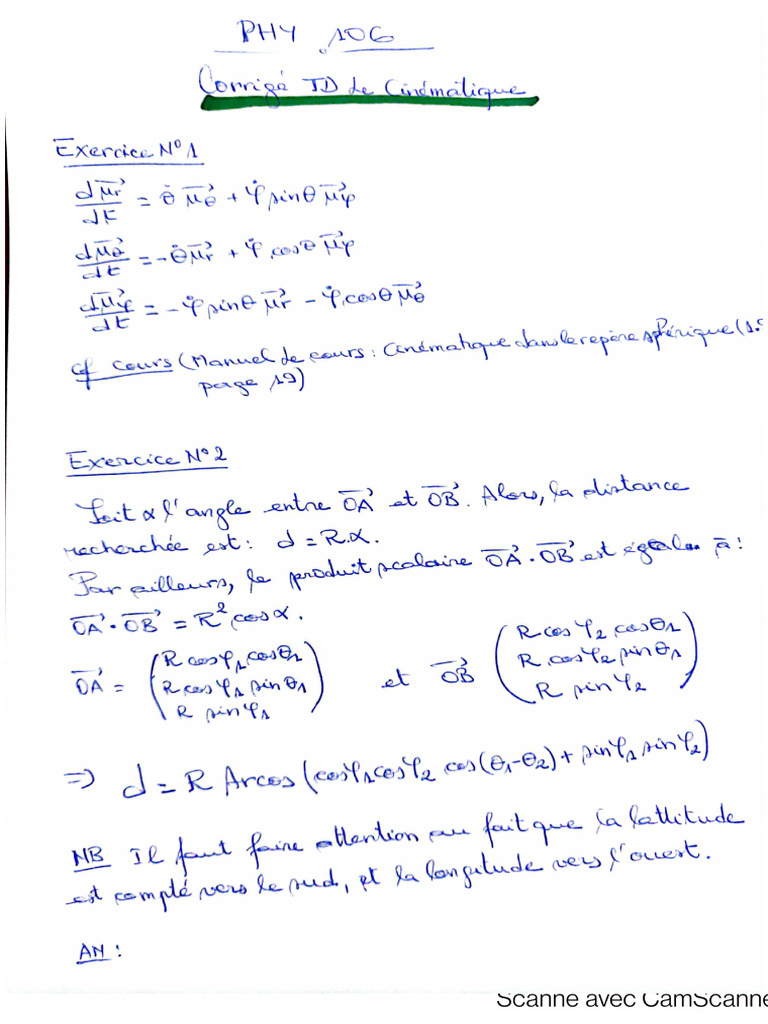 PHY 106
Corrigé TD de Cinématique
Exercice N°1
dμr⃗/dt = θ̇ μθ⃗ + φ̇ sinθ μφ⃗
dμθ⃗/dt = -θ̇ μr⃗ + φ̇ cosθ μφ⃗
dμφ⃗/dt = -φ̇ sinθ μr⃗ - φ̇ cosθ μθ⃗
cf cours (Manuel de cours : Cinématique dans le repère sphérique (1.
page 19)
Exercice N°2
Soit α l'angle entre OA⃗ et OB⃗. Alors, la distance
recherchée est : d = R.α.
Par ailleurs, le produit scalaire OA⃗ · OB⃗ est égale à :
OA⃗ · OB⃗ = R² cosα.
OA⃗ = (R cosφ1 cosθ1 ; R cosφ1 sinθ1 ; R sinφ1) et OB⃗ (R cosφ2 cosθ1 ; R cosφ2 sinθ1 ; R sinφ2)
=> d = R Arcos (cosφ1 cosφ2 cos(θ1-θ2) + sinφ1 sinφ2)
NB Il faut faire attention au fait que la lattitude
est compté vers le sud, et la longitude vers l'ouest.
AN :
Scanné avec CamScanne